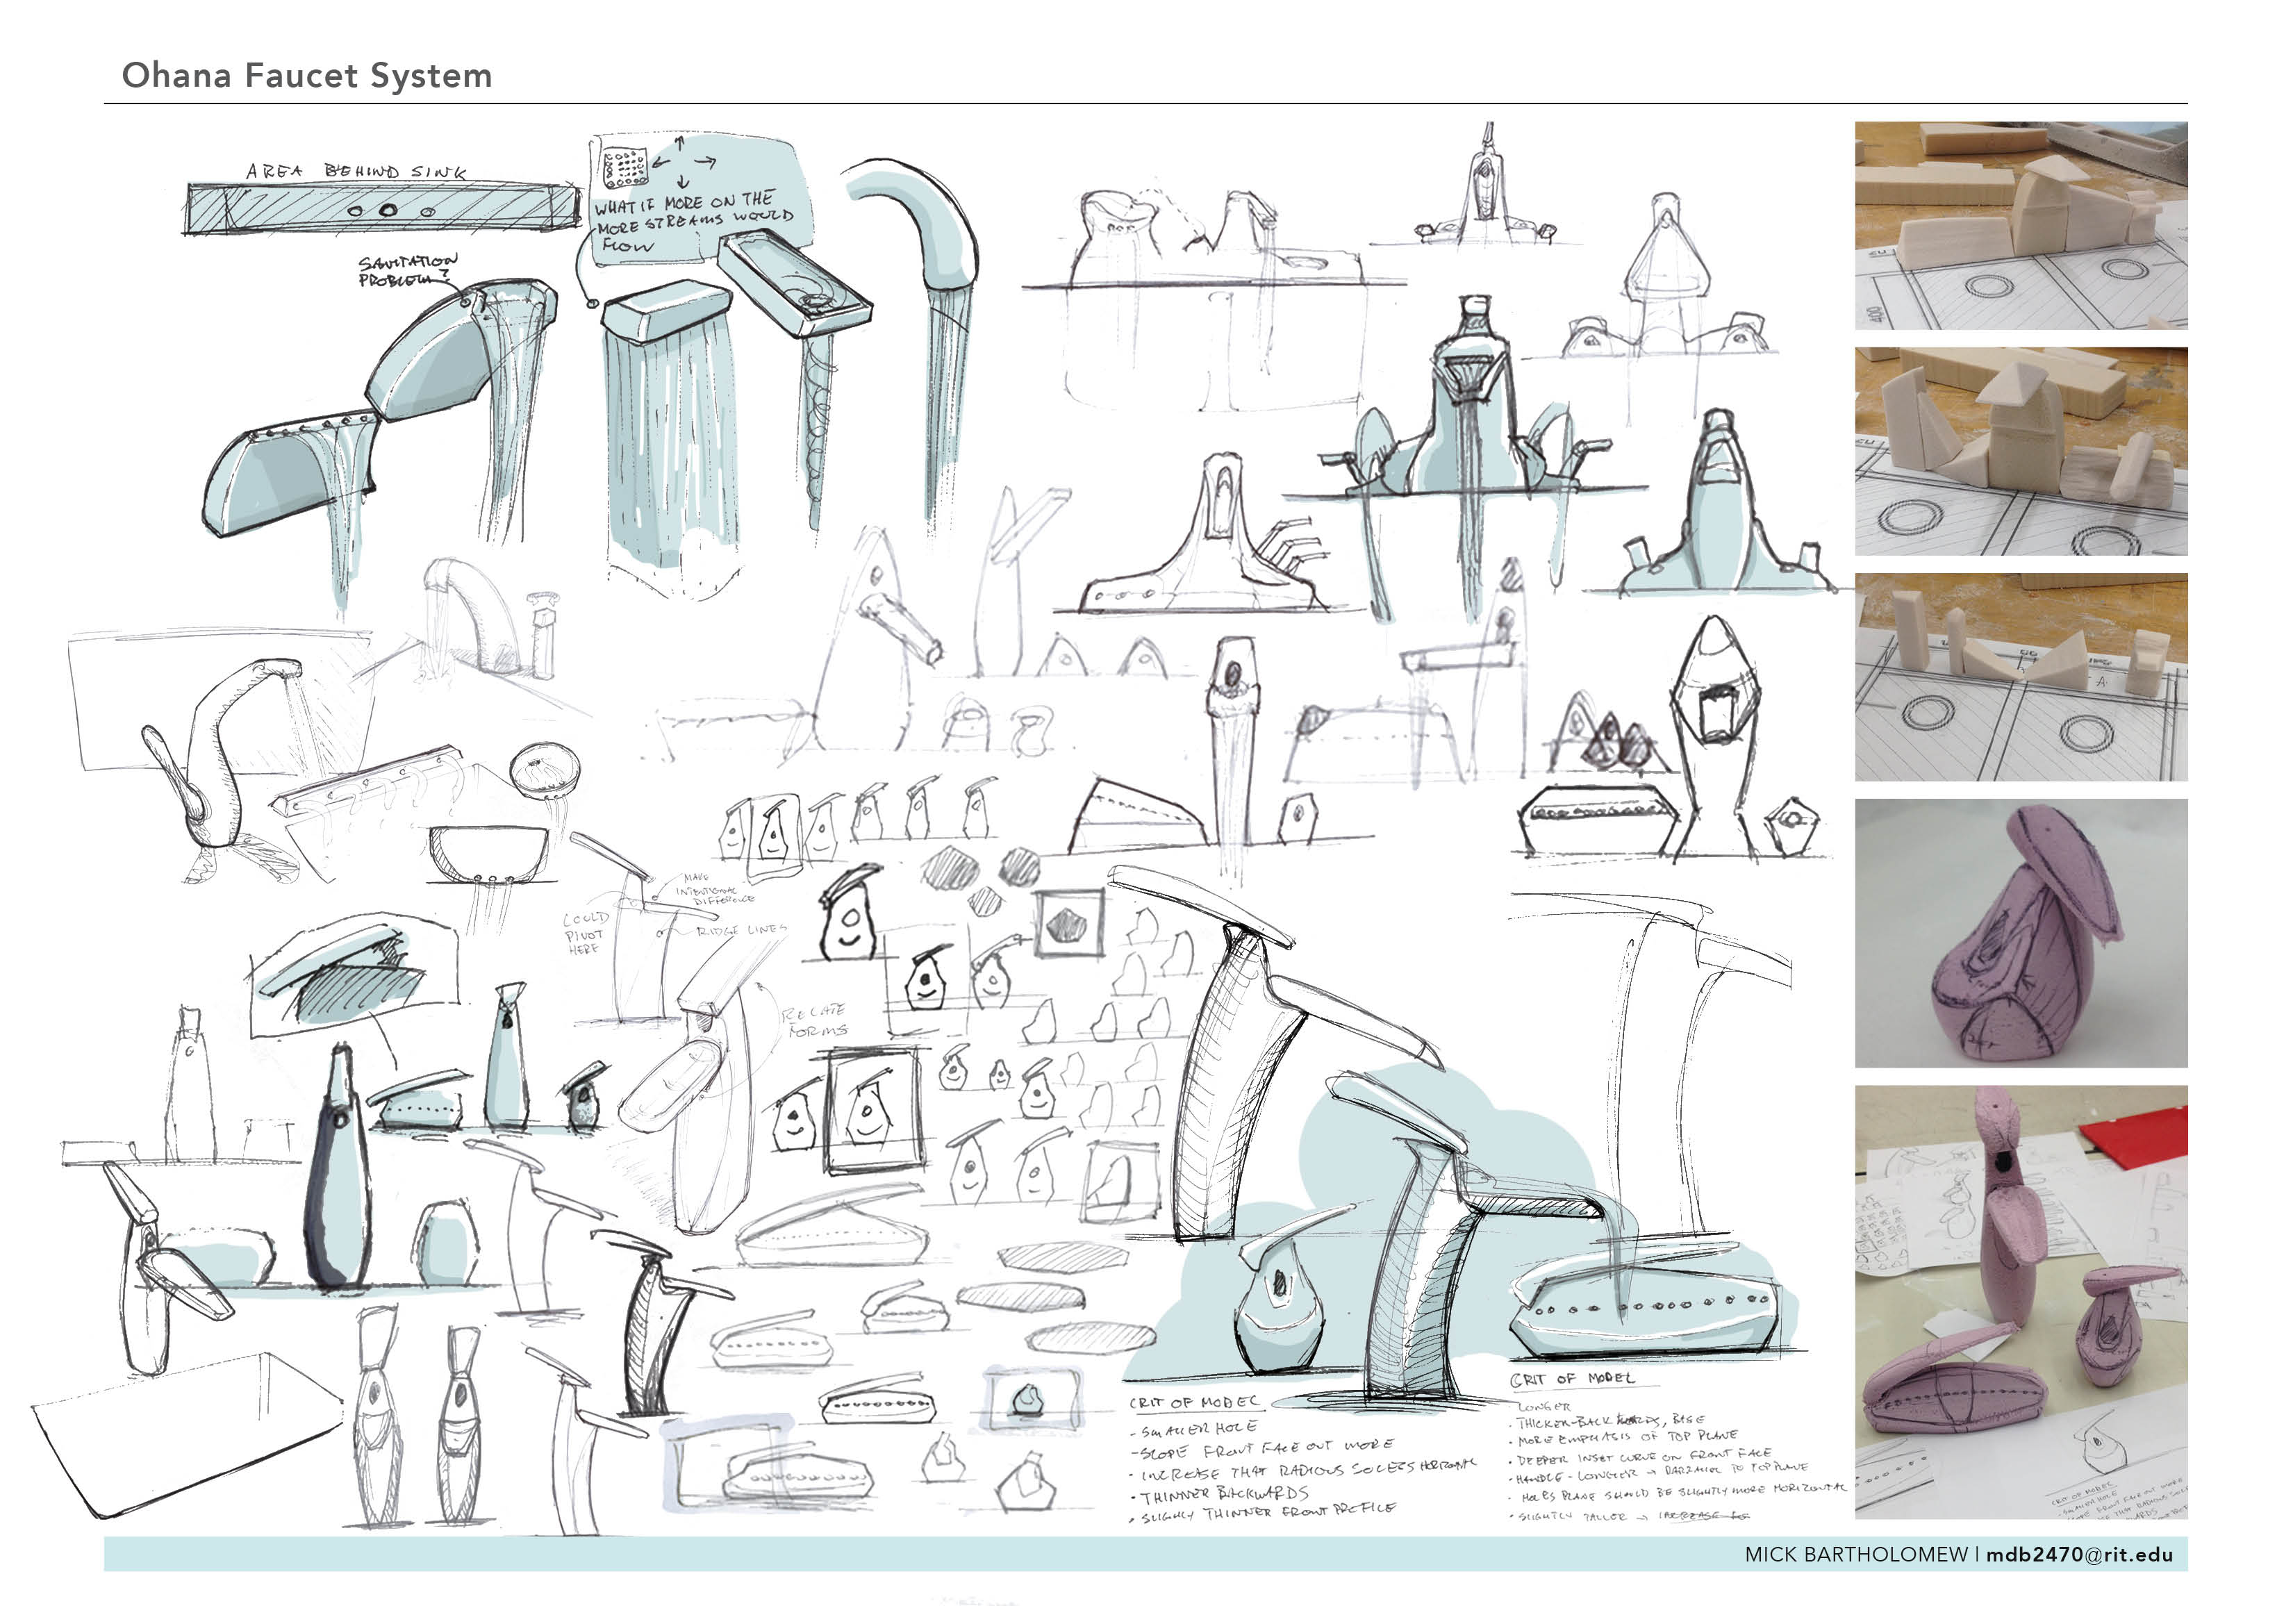 Ohana Faucet System
AREA BEHIND SINK
WHAT IF MORE ON THE
MORE STREAMS WOULD
FLOW
SANITATION
PROBLEM?
MAKE
INTENTIONAL
DIFFERENCE
COULD
PIVOT
HERE
RIDGE LINES
RELATE
FORMS
CRIT OF MODEL
- SMALLER HOLE
- SLOPE FRONT FACE OUT MORE
• INCREASE THAT RADIOUS SO LESS HORIZONTAL
• THINNER BACKWARDS
• SLIGHLY THINNER FRONT PROFILE
CRIT OF MODEL
LONGER
• THICKER-BACK WARDS, BASE
• MORE EMPHASIS OF TOP PLANE
• DEEPER INSET CURVE ON FRONT FACE
• HANDLE - LONGER → PARALLEL TO TOP PLANE
• HOLES PLANE SHOULD BE SLIGHTLY MORE HORIZONTAL
• SLIGHTLY TALLER →
400
A
CRIT OF MODEL
MICK BARTHOLOMEW | mdb2470@rit.edu